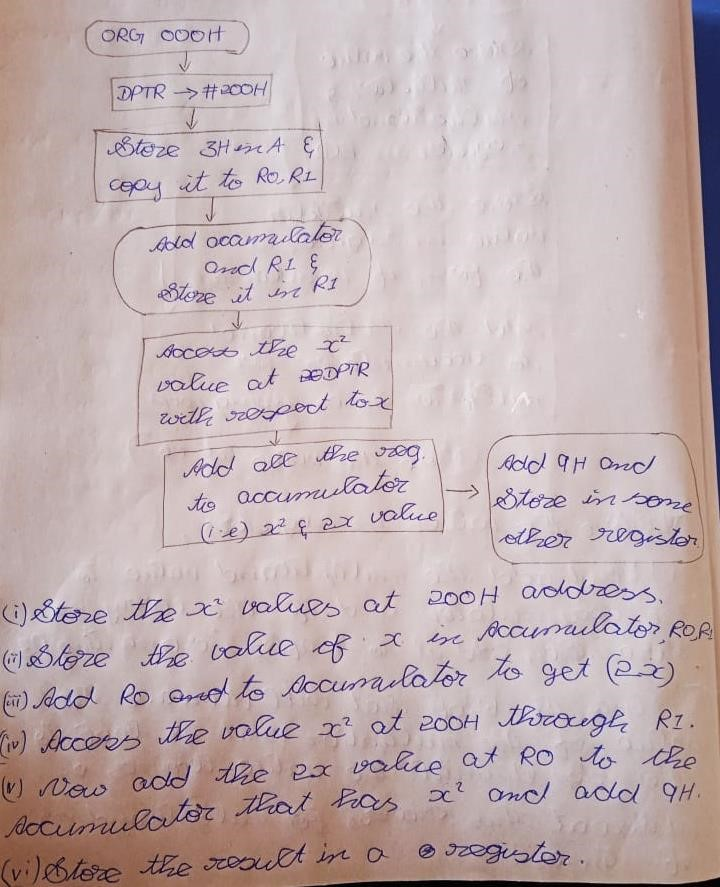 ORG 000H
DPTR → #200H
Store 3H in A &
copy it to R0, R1
Add accumulator
and R1 &
Store it in R1
Access the x²
value at DPTR
with respect to x
Add all the reg.
to accumulator
(i.e) x² & 2x value
Add 9H and
Store in some
other register
(i) Store the x² values at 200H address.
(ii) Store the value of x in Accumulator, R0, R1
(iii) Add R0 and to Accumulator to get (2x)
(iv) Access the value x² at 200H through R1.
(v) Now add the 2x value at R0 to the
Accumulator that has x² and add 9H.
(vi) Store the result in a register.